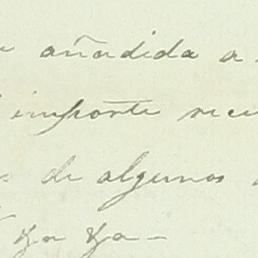 añadida a
importe recu
de algunos